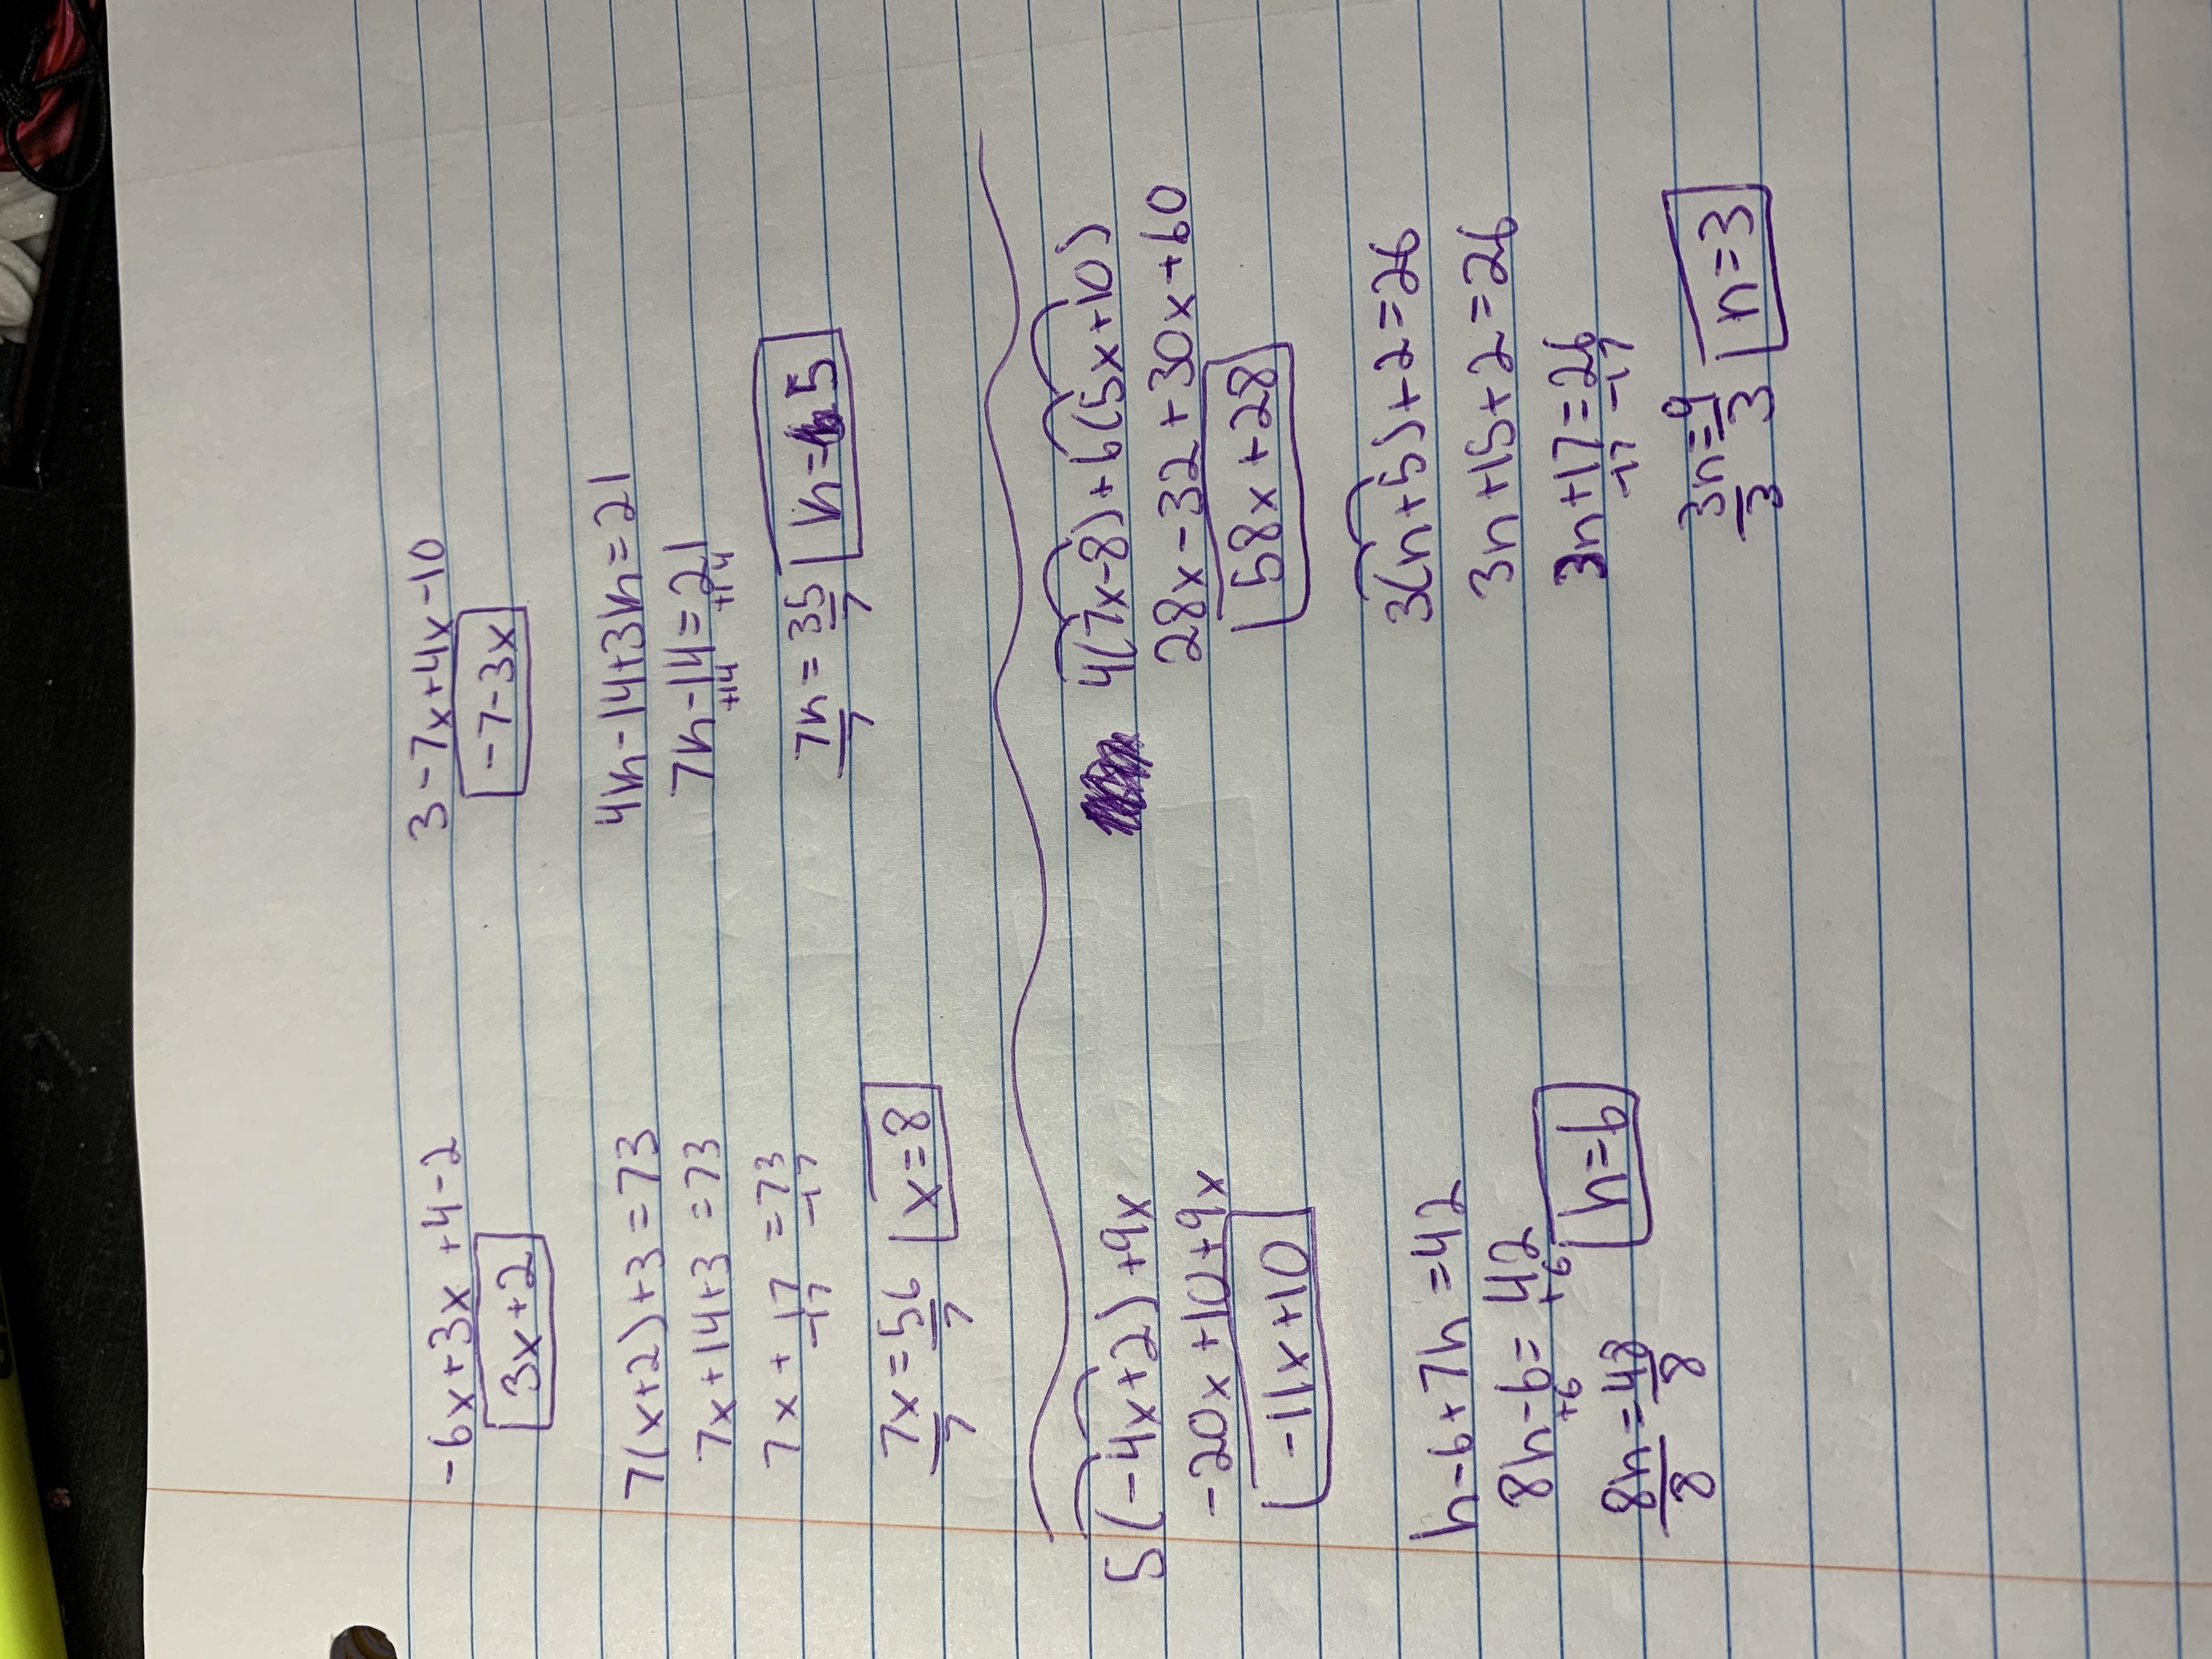 -6x+3x+4-2
3x+2
3-7x+4x-10
-7-3x
7(x+2)+3=73
7x+14+3=73
7x+17=73
-17 -17
7x=56
7 7
x=8
4h-14+3h=21
7h-14=21
+14 +14
7h=35
7 7
h=5
5(-4x+2)+9x
-20x+10+9x
-11x+10
4(7x-8)+6(5x+10)
28x-32+30x+60
58x+28
h-6+7h=42
8h-6=42
+6 +6
8h=48
8 8
h=6
3(n+5)+2=26
3n+15+2=26
3n+17=26
-17 -17
3n=9
3 3
n=3